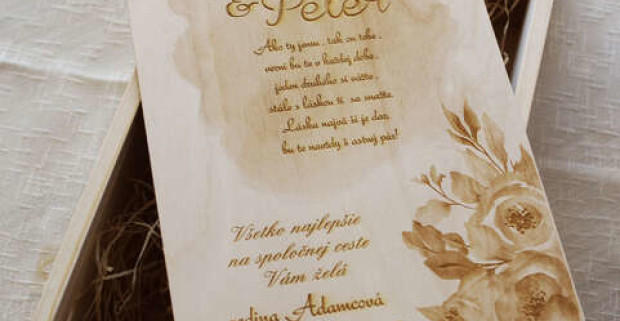 & Peter
Ako ty jemu, tak on tebe,
verní bu te v každej dobe,
jeden druhého si vážte,
stále s láskou ť sa snažte.
Láska najvä ší je dar,
bu te navždy š astný pár!
Všetko najlepšie
na spoločnej ceste
Vám želá
Adamcová